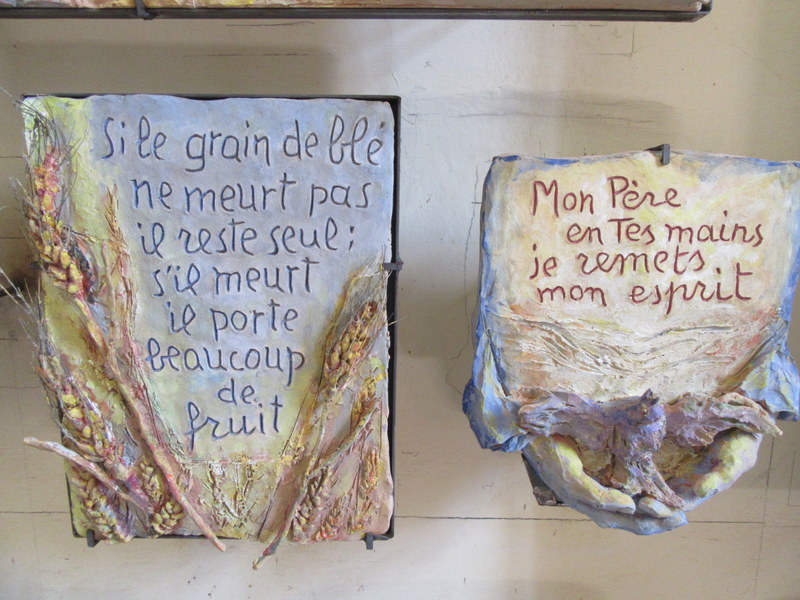 Si le grain de blé
ne meurt pas
il reste seul;
s'il meurt
il porte
beaucoup
de
fruit
Mon Père
en Tes mains
je remets
mon esprit